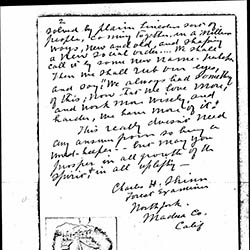 2
solved by plain Lincoln sort of
people, coming together in a million
ways, new and old, and shaping
a new social order. We shall
call it by some new name, perhaps.
Then we shall rub our eyes,
and say "We always had something
of this, now that we love more,
and work more wisely and
harder, we have more of it."
This really doesn't need
any answer from so busy a
But may you
prosper in all growth of the
spirit & in all uplift.
Charles H. Shinn
Forest Examiner
Northfork,
Madera Co.
Calif